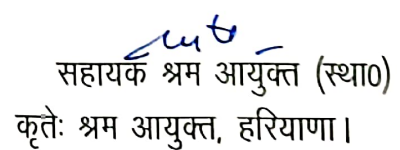 सहायक श्रम आयुक्त (स्था0)
कृतेः श्रम आयुक्त, हरियाणा।